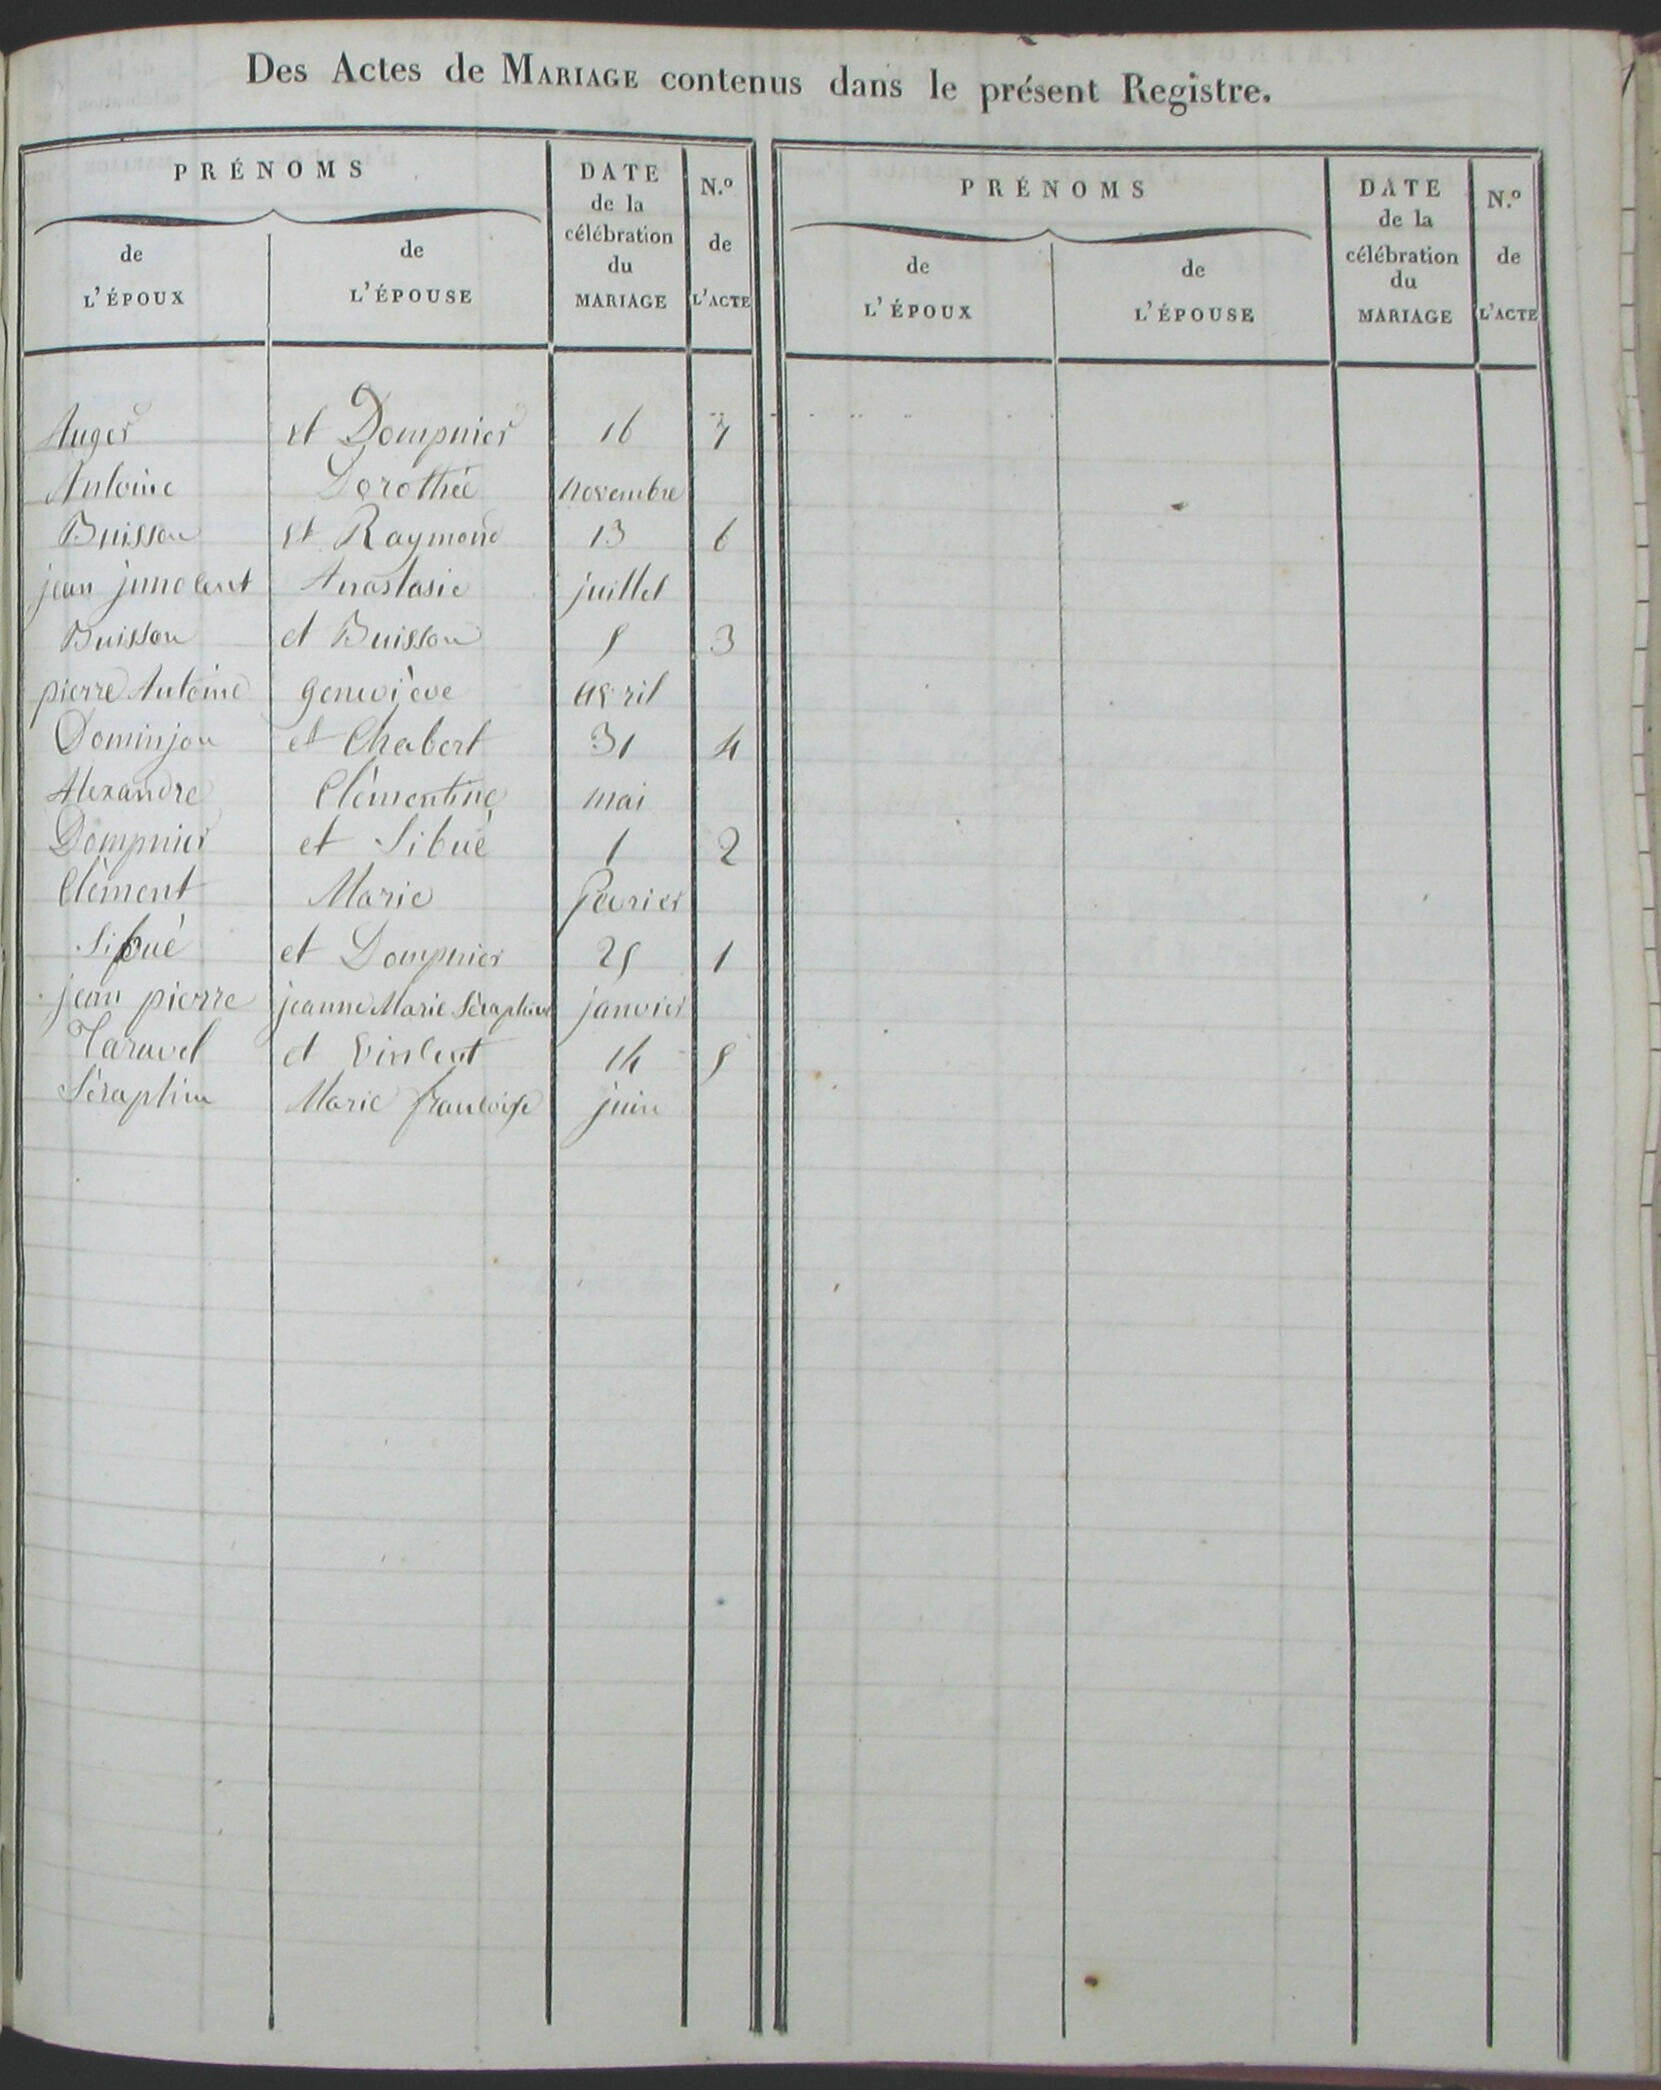 Des Actes de MARIAGE contenus dans le présent Registre.
PRÉNOMS
de L'ÉPOUX
de L'ÉPOUSE
DATE de la célébration du MARIAGE
N.º de L'ACTE
PRÉNOMS
de L'ÉPOUX
de L'ÉPOUSE
DATE de la célébration du MARIAGE
N.º de L'ACTE
Auger et Dompnier 16 7
Antoine Dorothée novembre
Buisson et Raymond 13 6
jean innocent Anastasie juillet
Buisson et Buisson 5 3
pierre Antoine geneviève avril
Dominjon et Chabert 31 4
Alexandre Clémentine mai
Dompnier et Sibué 1 2
Clément Marie fevrier
Sibué et Dompnier 25 1
jean pierre jeanne Marie Séraphine janvier
Taravel et Vincent 14 5
Séraphin Marie françoise juin